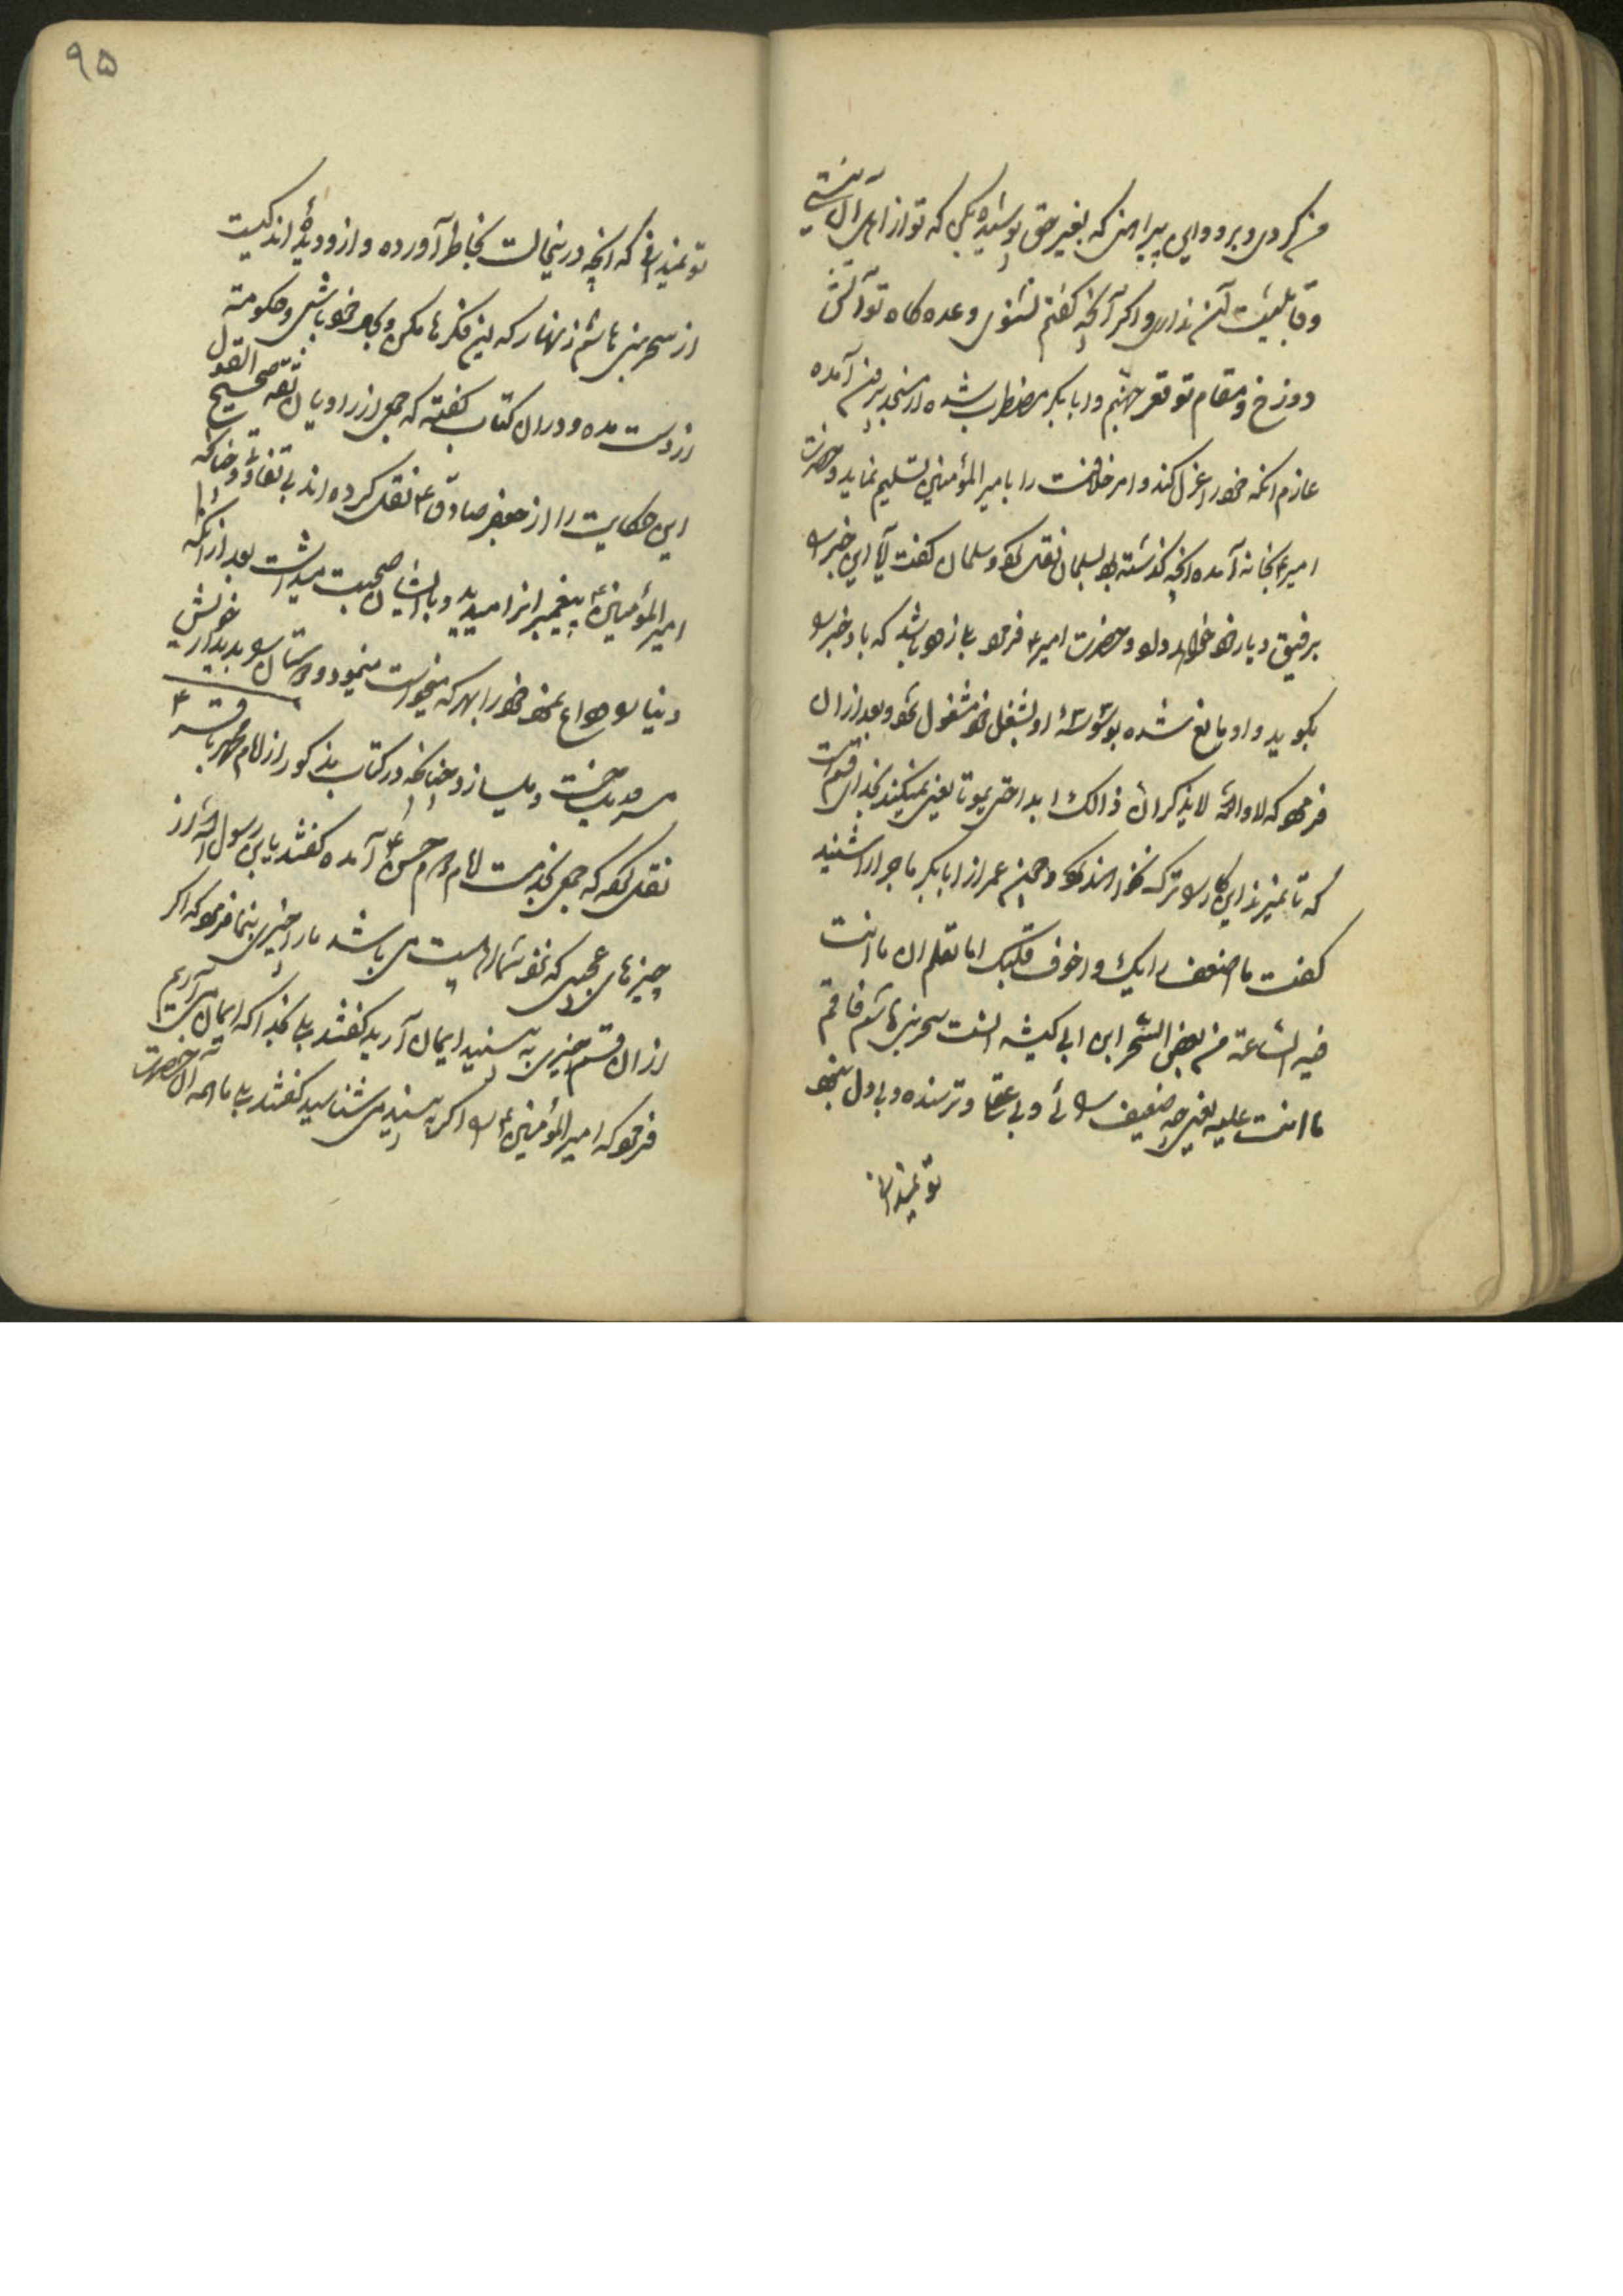 من کردی و برو و این پیراهن که بغیر حق پوشیده بکن که تو از اهل آن نیستی
و قابلیت آن نداری و اگر آنچه گفتم نشنوی وعده گاه تو آتش
دوزخ و مقام تو قعر جهنم و ابابکر مضطرب شده از مسجد بیرون آمده
عازم آنکه خود را عزل کند و امر خلافت را بامیر المؤمنین تسلیم نماید و حضرت
امیر بخانه آمده آنچه گذشته بود بسلمان نقل کرد و سلمان گفت آیا این خبر را
برفیق و یار خود خواهد داد و حضرت امیر فرمود باشد که باو خبر
بگوید و او مانع شده بوسوسهٔ او بشغل خود مشغول شود و بعد از آن
فرمود که لا والله لا یذکران ذالک ابدا حتی یموتا یعنی نمیکنند بخدای قسم است
که تا نمیرند این کار را ترک نخواهند کرد و چون عمر از ابابکر ماجرا را شنید
گفت ما اضعف رایک و اخوف قلبک اما تعلم ان ما انت
فیه الساعة من بعض السحر ابن ابی کبشه انسیت سحر بنی هاشم فاقم
ما انت علیه یعنی چه ضعیف رائی و بی عقل و ترسنده و بی دل
تو نمیدانی
۹۵
تو نمیدانی که آنچه درینحالت بخاطر آورده و از و دیدهٔ اندکیست
از سحر بنی هاشم زنهار که این فکرها مکن و بجای خود باش و حکومت
از دست مده و در آن کتاب گفته که جمعی از راویان ثقه صحیح القول
این حکایت را از جعفر صادق نقل کرده اند بی تفاوت و چنانکه
امیر المؤمنین پیغمبر انرا میدید و با ایشان صحبت میداشت بعد از آنکه
دنیا را وداع نمود خود را بهر که میخواست مینمود و دوستان را بدیدار خویش
مسرور میساخت و میسازد چنانکه در کتاب مذکور از امام محمد باقر
نقل کرده که جمعی بخدمت امام حسن آمده گفتند یا بن رسول الله از
چیزهای عجیبی که نزد شما اهل بیت می باشد ما را چیزی بنما فرمود که اگر
از آن قسم چیزی به بینید ایمان آرید گفتند بلی بخدا که ایمان می آریم
فرمود که امیر المؤمنین را اگر به بینید می شناسید گفتند بلی ما همه آن حضرت